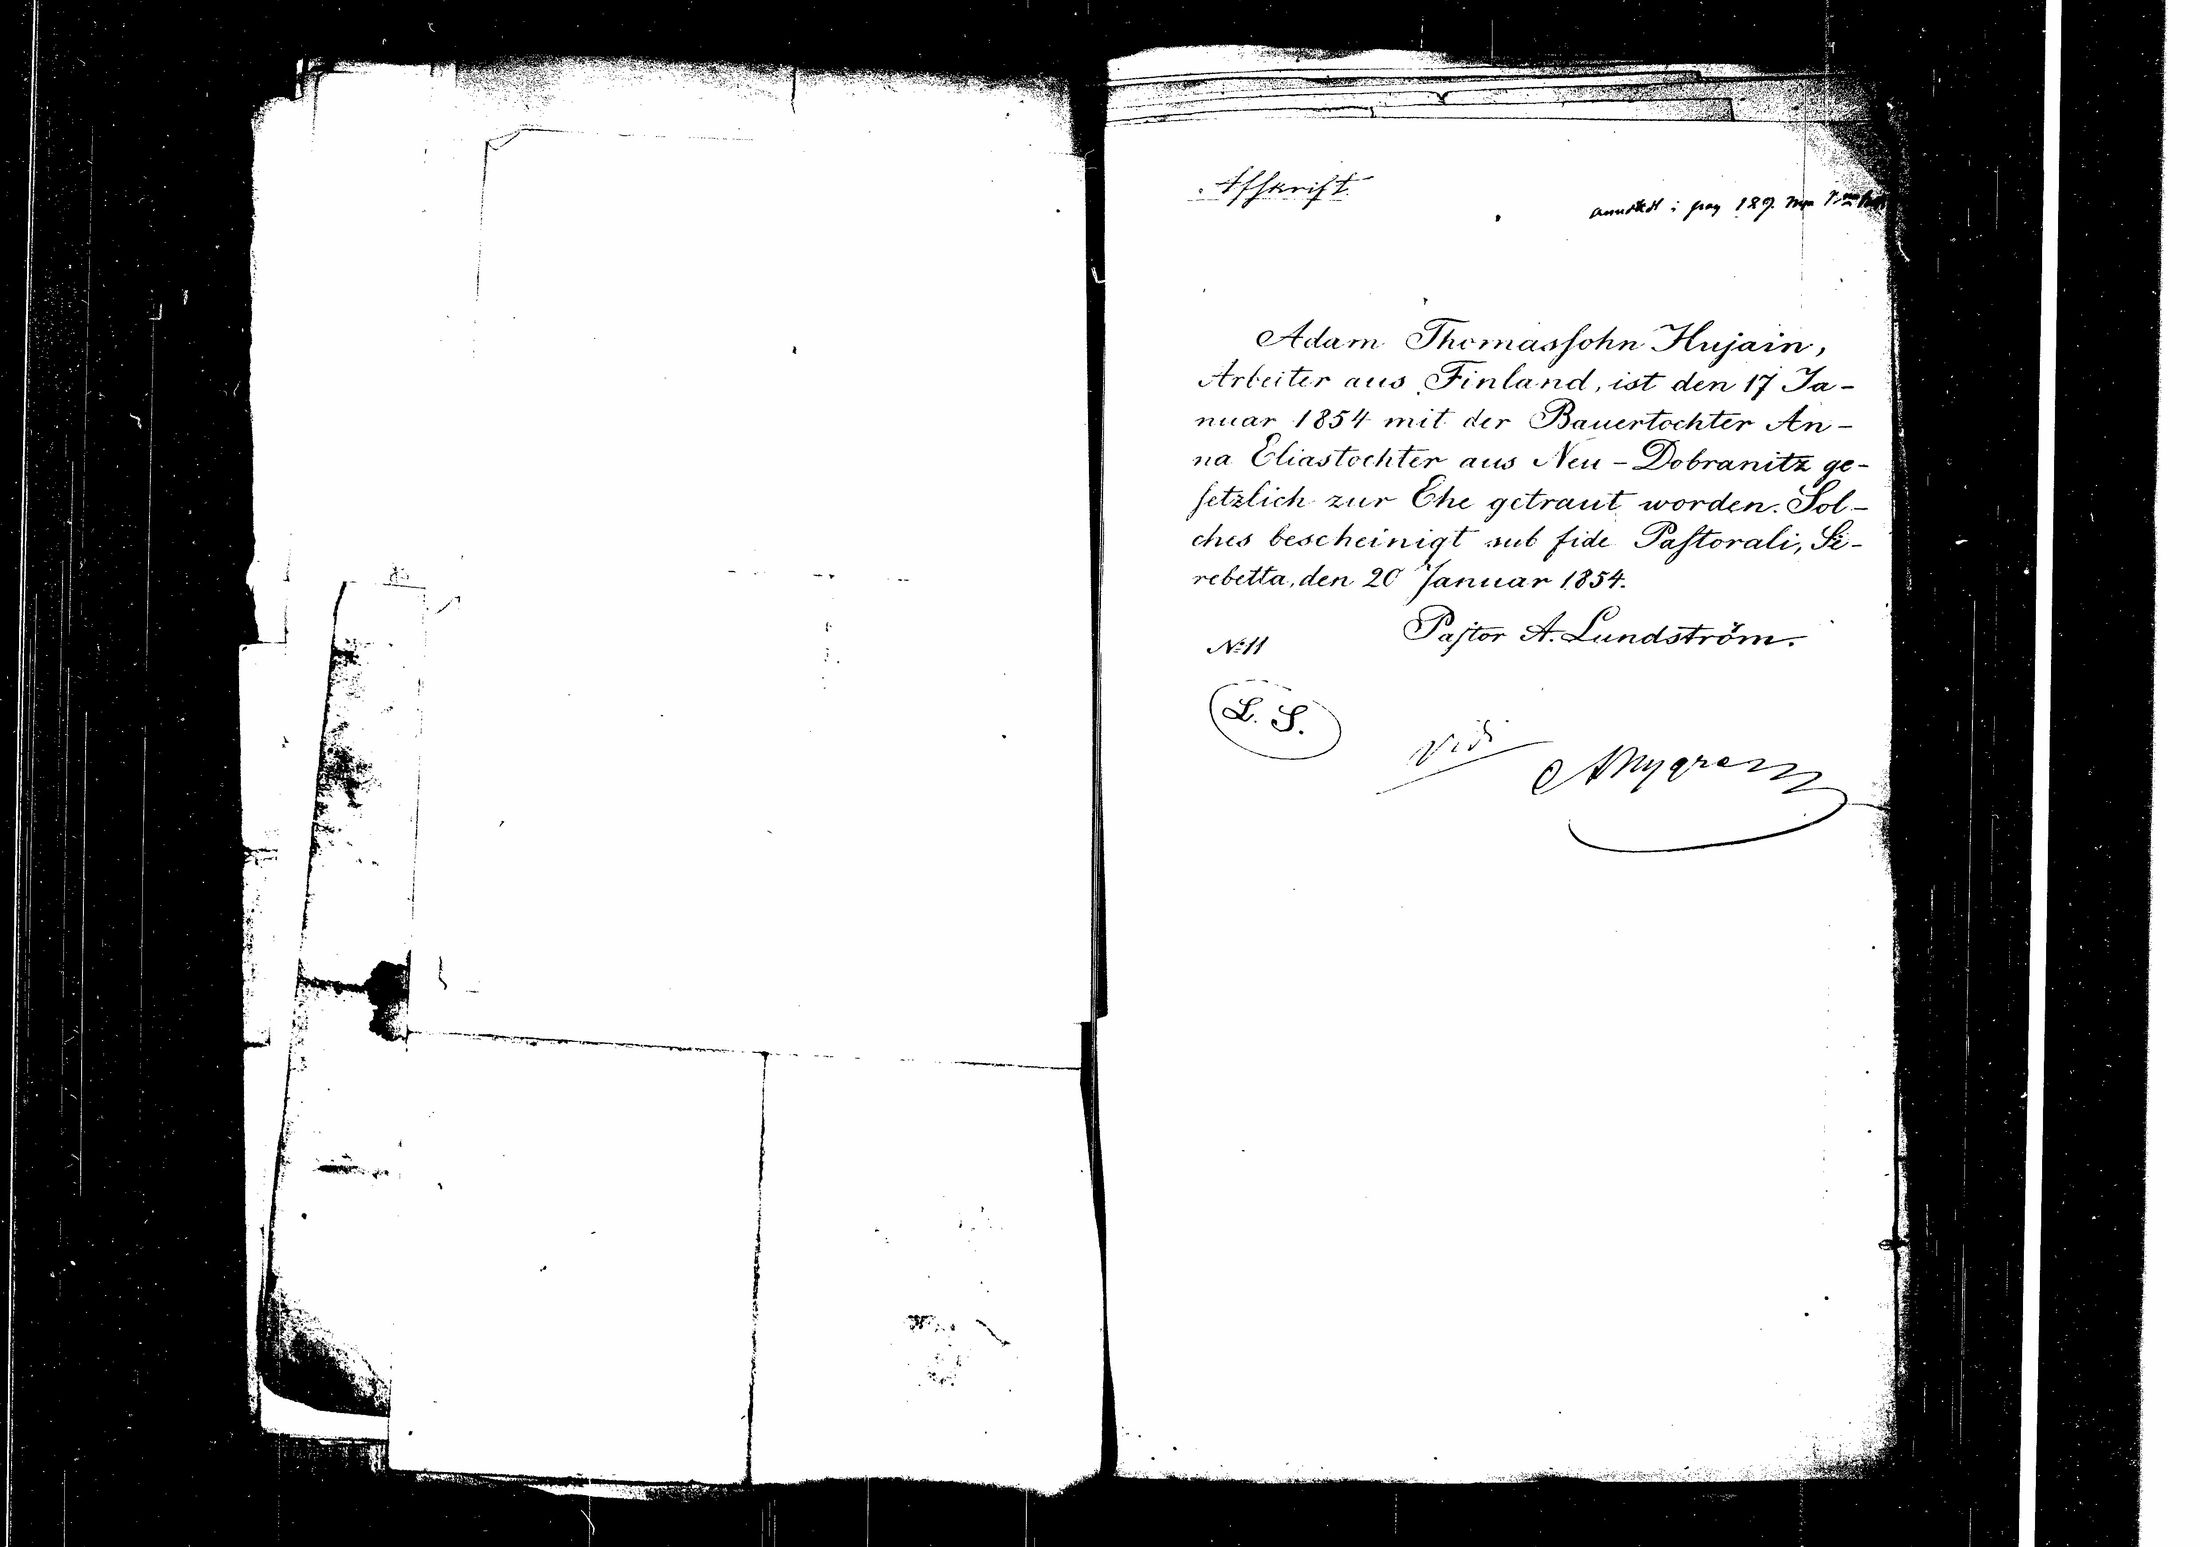 Afskrift
pag 189.
Adam Thomassohn Hujain,
Arbeiter aus Finland, ist den 17 Ja-
nuar 1854 mit der Bauertochter An-
na Eliastochter aus Neu-Dobranitz ge-
setzlich zur Ehe getraut worden. Sol-
ches bescheinigt sub fide Pastorali, Si-
rebetta, den 20 Januar 1854.
Pastor A. Lundström.
No 11
L. S.
Vidi
A Nygren